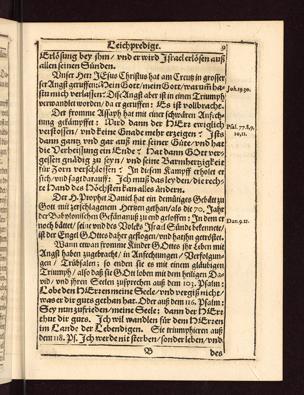 Leichpredigt. 9
Erlösung bey jhm / vnd er wird Israel erlösen auß
allen seinen Sünden.
Vnser Herr JEsus Christus hat am Creutz in grosser
Angst geruffen: Mein Gott / mein Gott / warumb ha-
stu mich verlassen: Dise Angst aber ist in einen Triumph
verwandlet worden / da er geruffen: Es ist vollbracht.
Joh. 19.30.
Der fromme Assaph hat mit einer schwären Anfech-
tung gekämpffet: Wird dann der HErr ewiglich
verstossen / vnd keine Gnade mehr erzeigen? Ists
Psal. 77.8.9.
10.11.
dann gantz vnd gar auß mit seiner Güte / vnd hat
die Verheissung ein Ende? Hat dann GOtt ver-
gessen gnädig zu seyn / vnd seine Barmhertzigkeit
für Zorn verschlossen? In disem Kampff erholet er
sich / vnd sagt darauff: Ich muß das leyden / die rech-
te Hand des Höchsten kan alles ändern.
Der H. Prophet Daniel hat ein demütiges Gebätt zu
Gott mit zerschlagenem Hertzen gethan / als die 70. Jahr
der Babylonischen Gefängnuß zu end geloffen: In dem er
Dan. 9.21.
noch bättet / seine vnd des Volcks Israel Sünde bekennete /
ist der Engel GOttes daher geflogen / vnd hat jhn getröstet.
Wann etwan fromme Kinder GOttes jhr Leben mit
Angst haben zugebracht / in Anfechtungen / Verfolgun-
gen / Trübsalen: so enden sie es mit einem gläubigen
Triumph / also daß sie Gott loben mit dem heiligen Da-
vid / vnd jhren Seelen zusprechen auß dem 103. Psalm:
Lobe den HErren meine Seele / vnd vergiß nicht /
was er dir guts gethan hat. Oder auß dem 116. Psalm:
Sey nun zufrieden / meine Seele: dann der HErr
thut dir guts. Ich wil wandlen für dem HErren
im Lande der Lebendigen. Sie triumphieren auß
dem 118. Ps. Ich werde nit sterben / sonder leben / vnd
B des